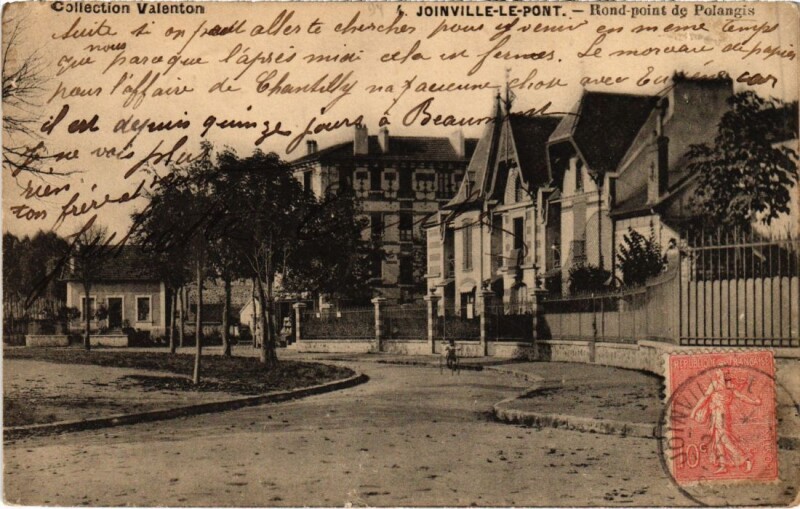 Collection Valenton
JOINVILLE-LE-PONT. — Rond-point de Polangis
Suite si on peut aller te chercher pour revenir en même temps
nous
que parceque l'après midi cela est fermes. Le morceau de papier
pour l'affaire de Chantilly n'a aucune chose avec Eugénie car
il est depuis quinze jours à Beaumont
Je ne vois plus
rien.
ton frère
REPUBLIQUE FRANÇAISE
10c
JOINVILLE LE